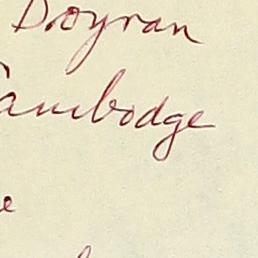 Doyran
Cambodge
e